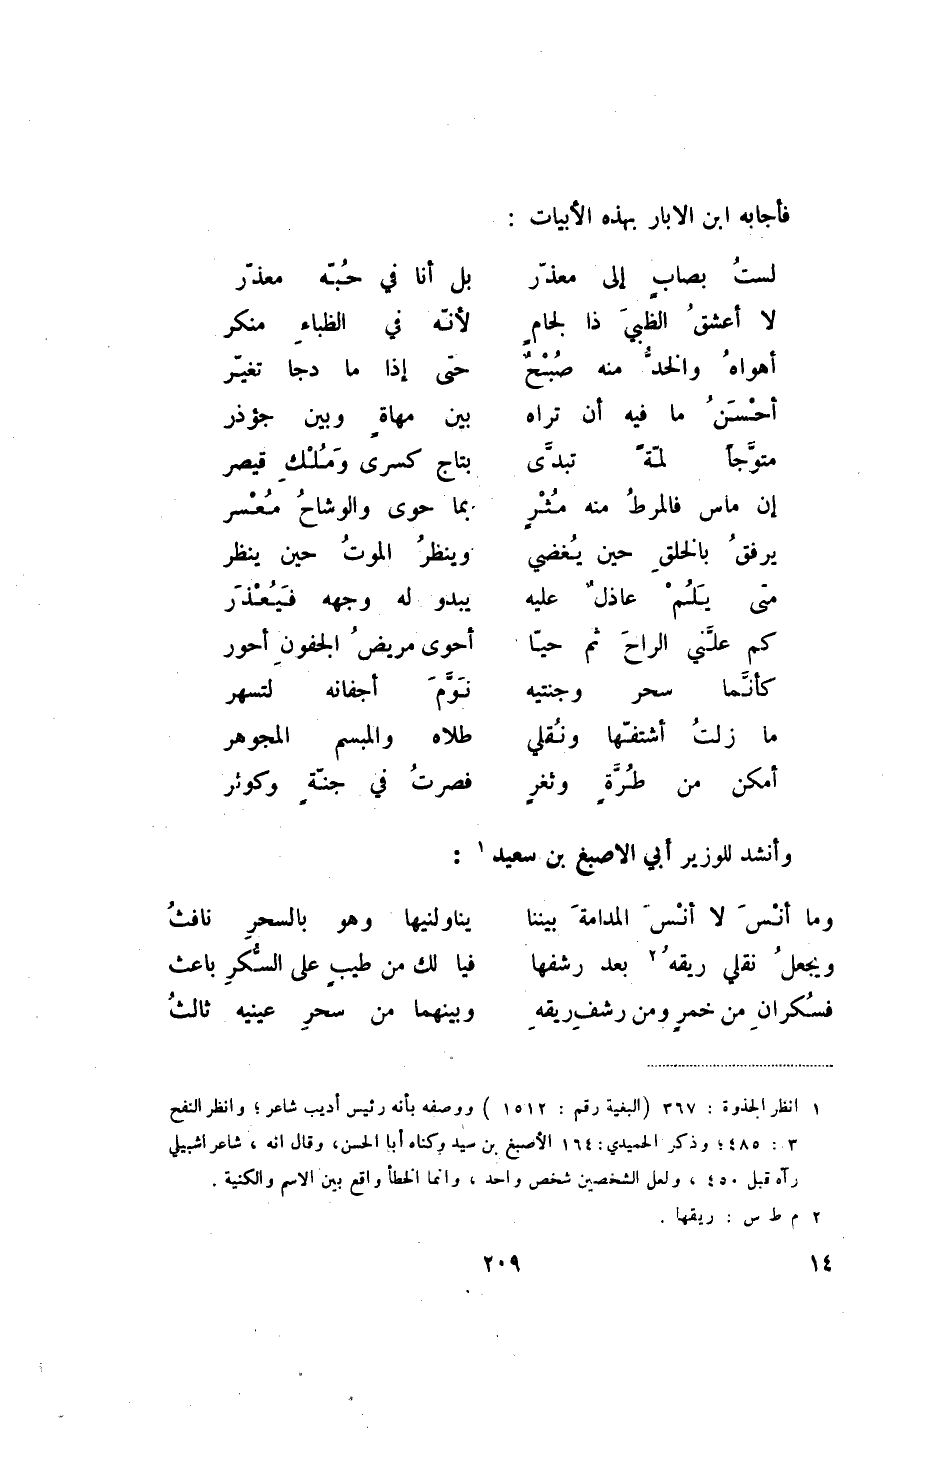 فأجابه ابن الابار بهذه الأبيات :
لستُ بصابٍ إلى معذّر بل أنا في حُبّه معذّر
لا أعشقُ الظبيَ ذا لجامٍ لأنّه في الظباءِ منكر
أهواهُ والخدُّ منه صُبْحٌ حتّى إذا ما دجا تغيّر
أحْسَنُ ما فيه أن تراه بين مهاةٍ وبين جؤذر
متوَّجاً لمّةً تبدَّى بتاج كسرى ومُلْكِ قيصر
إن ماس فالمرطُ منه مُثْرٍ بما حوى والوشاحُ مُعْسر
يرفقُ بالخلقِ حين يُغضي وينظرُ الموتُ حين ينظر
متى يَلُمْ عاذلٌ عليه يبدو له وجهه فيُعْذَر
كم علَّني الراحَ ثم حيّا أحوى مريضُ الجفونِ أحور
كأنَّما سحر وجنتيه نَوَّمَ أجفانه لتسهر
ما زلتُ أشتفّها ونُقلي طلاه والمبسم المجوهر
أمكن من طُرَّةٍ وثغرٍ فصرتُ في جنّةٍ وكوثر
وأنشد للوزير أبي الاصبغ بن سعيد ١ :
وما أنْسَ لا أنْسَ المدامةَ بيننا يناولنيها وهو بالسحرِ نافثُ
ويجعلُ نقلي ريقهُ ٢ بعد رشفها فيا لك من طيبٍ على السُّكرِ باعث
فسُكرانِ من خمرٍ ومن رشفِ ريقهِ وبينهما من سحرِ عينيه ثالثُ
١ انظر الجذوة : ٣٦٧ (البغية رقم : ١٥١٢ ) ووصفه بأنه رئيس أديب شاعر ؛ وانظر النفح
٣ : ٤٨٥؛ وذكر الحميدي: ١٦٤ الأصبغ بن سيد وكناه أبا الحسن، وقال انه ، شاعر اشبيلي
رآه قبل ٤٥٠ ، ولعل الشخصين شخص واحد ، وانما الخطأ واقع بين الاسم والكنية .
٢ م ط س : ريقها .
١٤ ٢٠٩